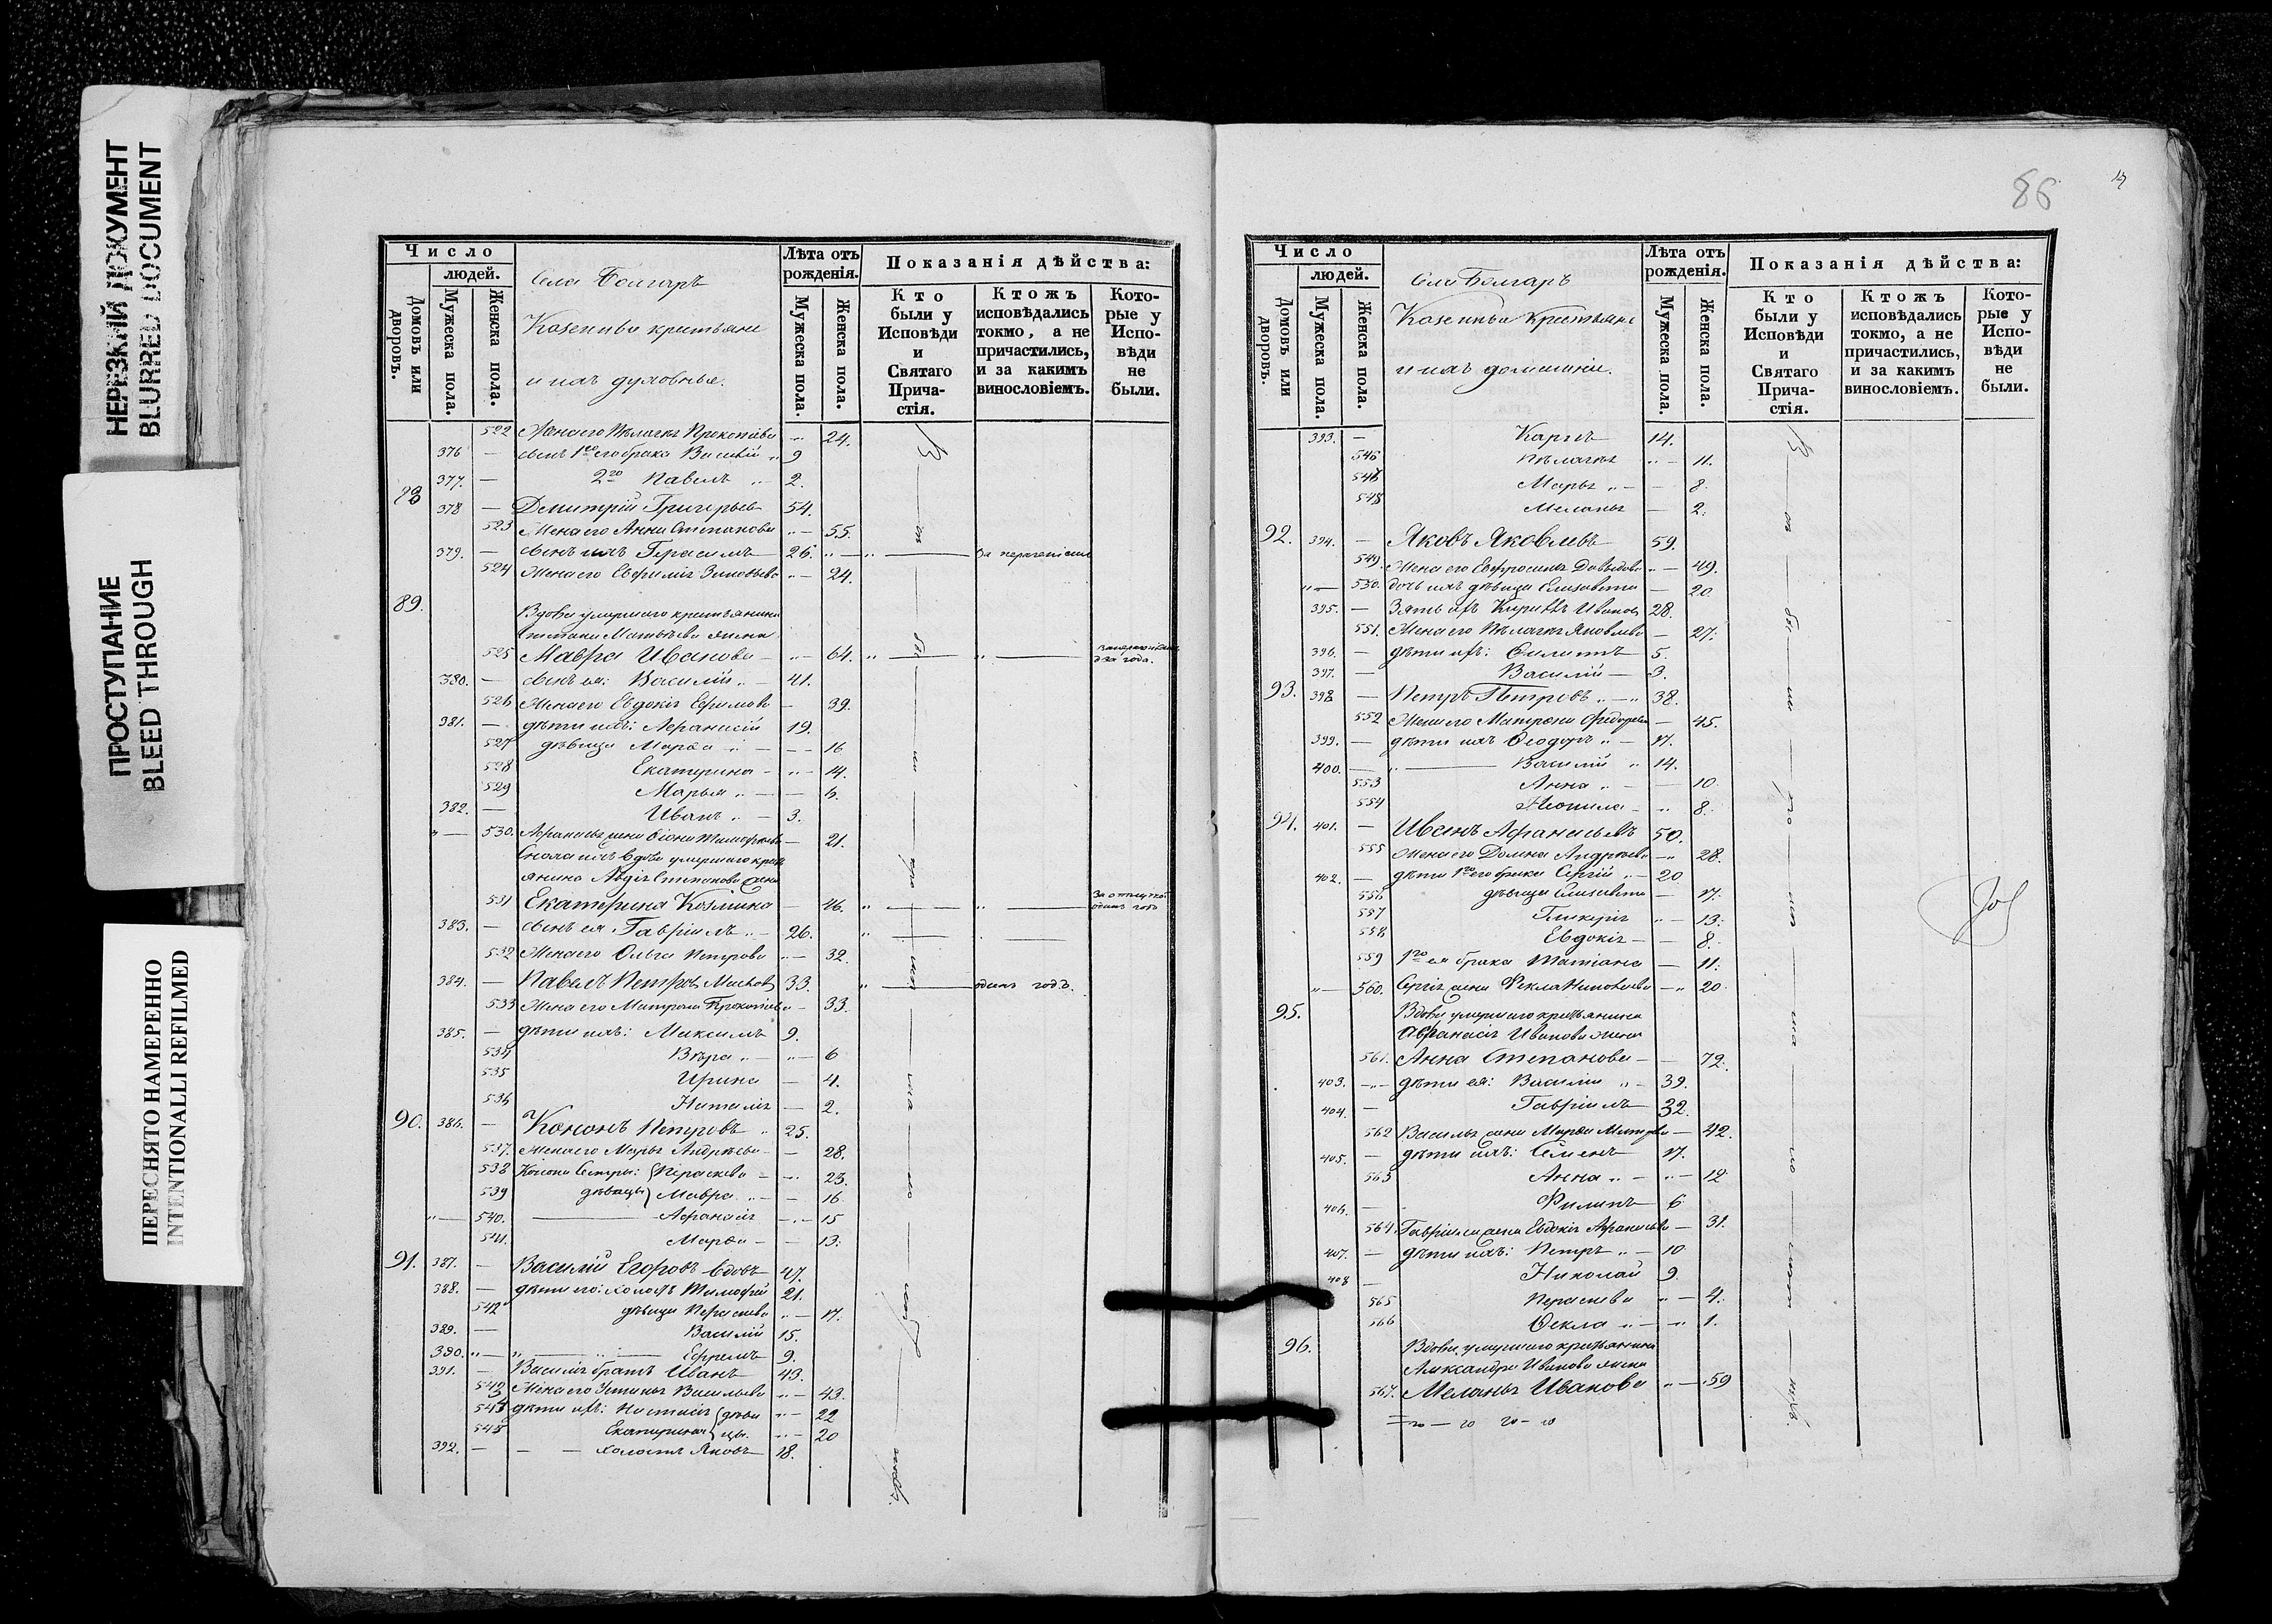 НЕРЕЗКИЙ ДОКУМЕНТ
BLURRED DOCUMENT
ПРОСТУПАНИЕ
BLEED THROUGH
ПЕРЕСНЯТО НАМЕРЕННО
INTENTIONALLI REFILMED
Число
людей.
Домовъ или дворовъ.
Мужеска пола.
Женска пола.
Села Болгаръ
Казенные крестьяне
и ихъ духовные.
Лѣта отъ рожденія.
Мужеска пола.
Женска пола.
Показанія дѣйства:
Кто были у Исповѣди и Святаго Прича-стія.
Ктожъ исповѣдались токмо, а не причастились, и за какимъ винословіемъ.
Кото-рые у Испо-вѣди не были.
522 Жена его Пелагія Прокопіева - 24.
376 - сынъ 1го его брака Василій 9
377. - 2го Павелъ 2.
88 378 - Димитрій Григорьевъ 54.
523 Жена его Анна Степанова - 55.
379. - сынъ ихъ Герасимъ 26. за нерачениемъ
524 Жена его Евфимія Зиновьева - 24.
89. Вдова умершаго крестьянина
Степана Матвѣева жена
525 Мавра Иванова - 64. два года.
380. - сынъ ея: Василій 41.
526 Жена его Евдокія Ефимова - 39.
381. - дѣти ихъ: Афанасій 19.
527 дѣвица Марѳа - 16
528 Екатерина - 14.
529 Марья - 6.
382. - Иванъ 3.
530. Афанасья жена Тимофѣева - 21.
Сноха ихъ вдова умершаго кресть
янина Авдія Степанова жена
531 Екатерина Козмина - 46. за отлучкой одинъ годъ
383. - сынъ ея Гавріилъ 26.
532 Жена его Ольга Петрова - 32.
384. - Павелъ Петровъ 33. одинъ годъ.
533 Жена его Матрона Прокопіева - 33.
385. - дѣти ихъ: Максимъ 9.
534 Вѣра - 6
535 Ирина - 4.
536 Наталія - 2.
90. 386. - Кононъ Петровъ 25.
537. Жена его Марья Андрѣева - 28.
538 Конона сестры: Параскева - 23.
539 дѣвицы Мавра - 16
540. Афанасія - 15
541. Марѳа - 13.
91. 387. - Василій Егоровъ вдовъ 47.
388. - дѣти его: холостъ Тимофей 21.
542 дѣвица Параскева - 17.
389. - Василій 15.
390. Ефремъ 9.
391. - Василія братъ Иванъ 43.
543 Жена его Устинья Васильева - 43.
544 дѣти ихъ: Настасія дѣви - 22
545 Екатерина цы. - 20
392. - холостъ Яковъ 18.
86
Число
людей.
Домовъ или дворовъ.
Мужеска пола.
Женска пола.
Села Болгаръ
Казенные Крестьяне
и ихъ домашніе.
Лѣта отъ рожденія.
Мужеска пола.
Женска пола.
Показанія дѣйства:
Кто были у Исповѣди и Святаго Прича-стія.
Ктожъ исповѣдались токмо, а не причастились, и за какимъ винословіемъ.
Кото-рые у Испо-вѣди не были.
393. - Карпъ 14.
546 Пелагія - 11.
Марья - 8.
548 Меланья - 2.
92. 394. - Яковъ Яковлевъ 59.
549. Жена его Евфросинья Давыдова - 49.
550. дочь ихъ дѣвица Елизавета - 20
395. - Зять ихъ Кирилъ Ивановъ 28.
551. Жена его Пелагія Яковлева - 27.
396. - дѣти ихъ: Филиппъ 5.
397. - Василій 3.
93. 398 - Петръ Петровъ 38.
552 Жена его Матрона Федорова - 45.
399. - дѣти ихъ Ѳеодоръ 17.
400. Василій 14.
553 Анна - 10
554 Неонила - 8.
94. 401. - Иванъ Афанасьевъ 50.
555 Жена его Домна Андрѣева - 28.
402. - дѣти 1го его брака Сергій 20
556 дѣвица Елизавета - 17.
557 Гликерія - 13.
558 Евдокія - 8.
559 1го ея брака Татіана - 11.
560. Сергія жена Ѳекла - 20.
95. Вдова умершаго крестьянина
Афанасія Иванова жена
561. Анна Степанова - 72.
403. дѣти ея: Василій 39.
404. - Гавріилъ 32.
562 Василья жена Марѳа - 42.
405. - дѣти ихъ: Семенъ 17.
563 Анна - 12
406. - Филипъ 6
564. Гавріила жена Евдокія Афанасьева - 31.
407. - дѣти ихъ: Петръ 10
408 - Николай 9
565 Параскева - 4.
566 Ѳекла - 1.
96. Вдова, умершаго крестьянина
Александра Иванова жена
567. Меланья Иванова - 59